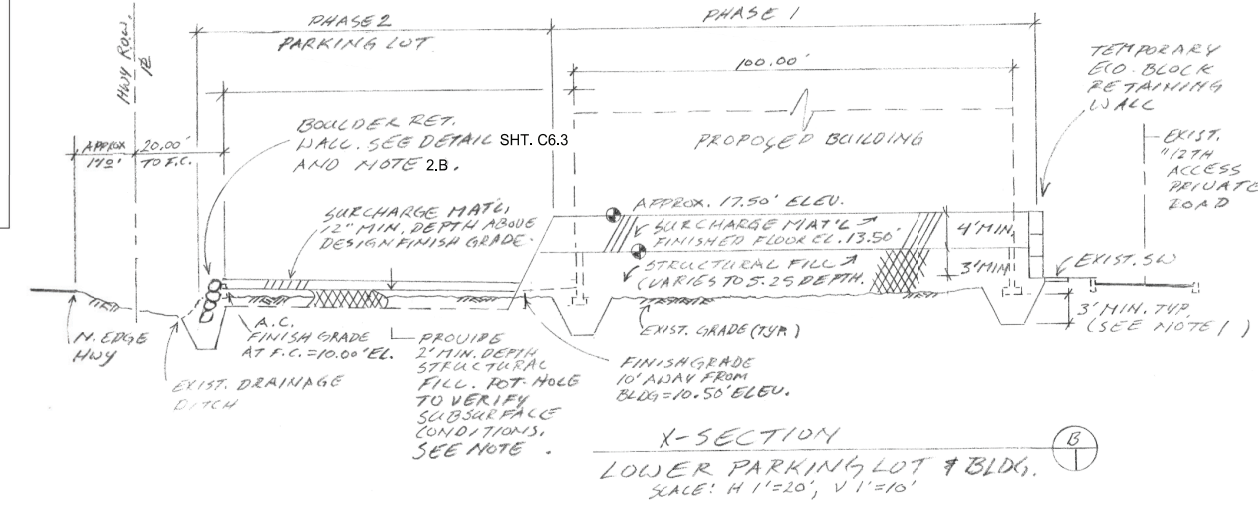 PHASE 2
PARKING LOT
PHASE 1
HWY ROW
100.00'
TEMPORARY
ECO-BLOCK
RETAINING
WALL
PROPOSED BUILDING
BOULDER RET.
WALL. SEE DETAIL SHT. C6.3
AND NOTE 2.B.
APPROX
20.00'
TO F.C.
EXIST.
"12TH
ACCESS
PRIVATE
ROAD
SURCHARGE MAT'L,
12" MIN. DEPTH ABOVE
DESIGN FINISH GRADE.
APPROX. 17.50' ELEV.
SURCHARGE MAT'L
FINISHED FLOOR EL. 13.50'
STRUCTURAL FILL
(VARIES TO 5.25 DEPTH.
4' MIN.
3' MIN
EXIST. SW
3' MIN. TYP.
(SEE NOTE 1)
EXIST. GRADE (TYP.)
N. EDGE
HWY
A.C.
FINISH GRADE
AT F.C. = 10.00' EL.
EXIST. DRAINAGE
DITCH
PROVIDE
2' MIN. DEPTH
STRUCTURAL
FILL. POT-HOLE
TO VERIFY
SUBSURFACE
CONDITIONS.
SEE NOTE .
FINISH GRADE
10' AWAY FROM
BLDG = 10.50' ELEV.
X-SECTION
B
1
LOWER PARKING LOT & BLDG.
SCALE: H 1"=20', V 1"=10'